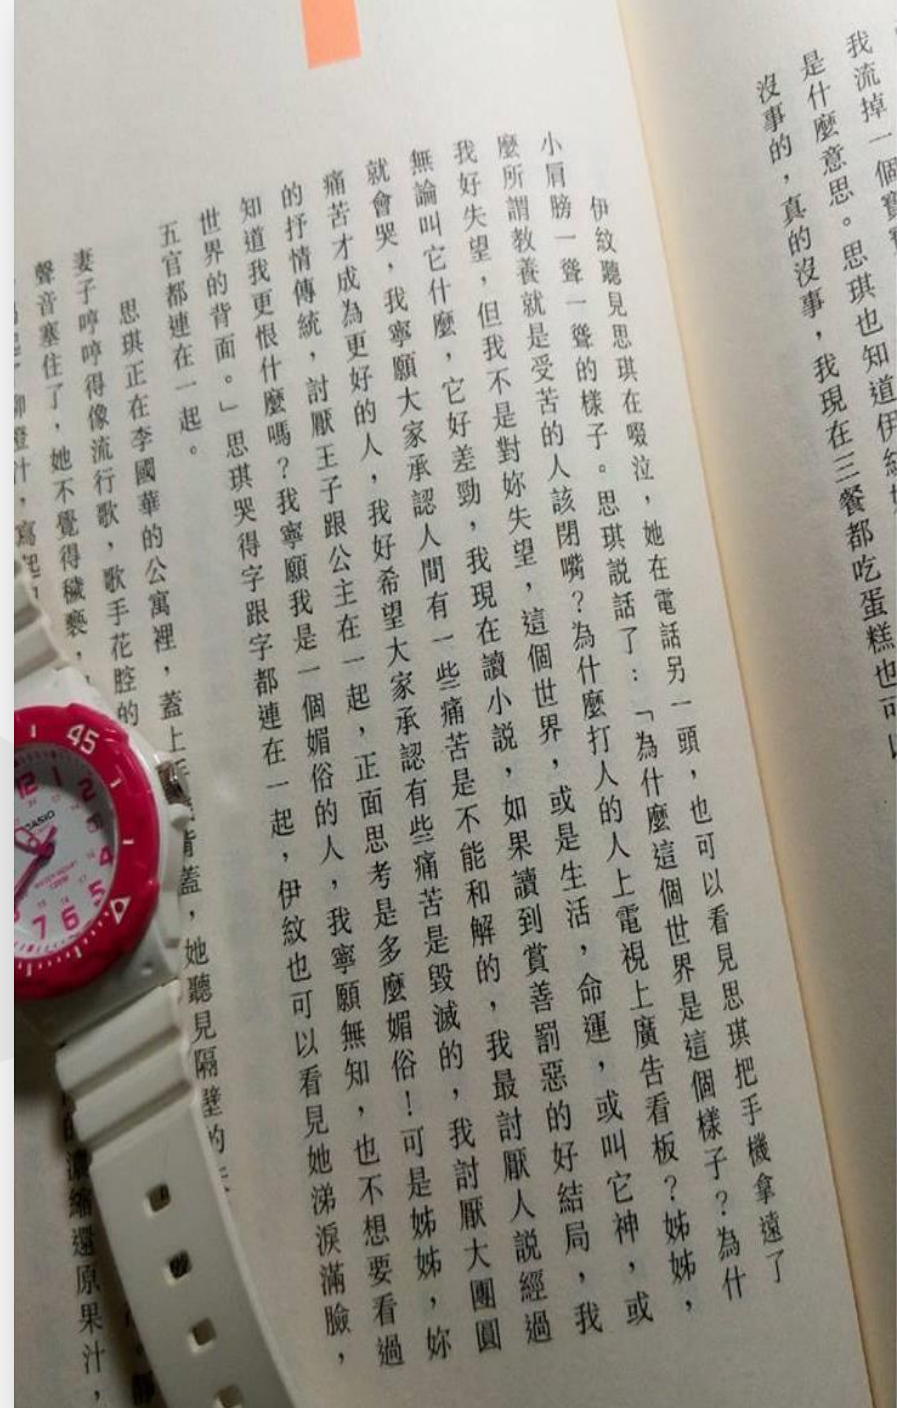 我流掉一個
是什麼意思。思琪也知道伊
沒事的，真的沒事，我現在三餐都吃蛋糕也可
伊紋聽見思琪在啜泣，她在電話另一頭，也可以看見思琪把手機拿遠了
小肩膀一聳一聳的樣子。思琪説話了：「為什麼這個世界是這個樣子？為什
麼所謂教養就是受苦的人該閉嘴？為什麼打人的人上電視上廣告看板？姊姊，
我好失望，但我不是對妳失望，這個世界，或是生活，命運，或叫它神，或
無論叫它什麼，它好差勁，我現在讀小説，如果讀到賞善罰惡的好結局，我
就會哭，我寧願大家承認人間有一些痛苦是不能和解的，我最討厭人説經過
痛苦才成為更好的人，我好希望大家承認有些痛苦是毀滅的，我討厭大團圓
的抒情傳統，討厭王子跟公主在一起，正面思考是多麼媚俗！可是姊姊，妳
知道我更恨什麼嗎？我寧願我是一個媚俗的人，我寧願無知，也不想要看過
世界的背面。」思琪哭得字跟字都連在一起，伊紋也可以看見她涕淚滿臉，
五官都連在一起。
思琪正在李國華的公寓裡，蓋上背蓋，她聽見隔壁的
妻子哼得像流行歌，歌手花腔的
聲音塞住了，她不覺得穢褻，
柳橙汁，寫濃縮還原果汁，
45
12 1 2 4 5 6 7
CASIO